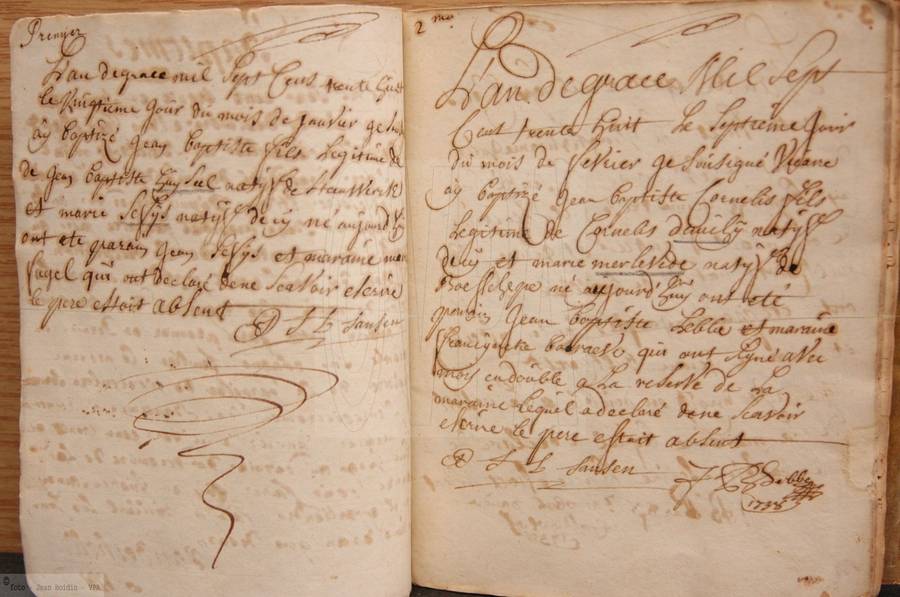 Premier
L'an de grace mil Sept Cens trente huit
le Vingtieme Jour du mois de Janvier Je
ay baptizé Jean baptiste fils Legitime de
de Jean baptiste natyf de Steenwerck
et marie Sesys natyf decy né aujourd'huy
ont eté parain Jean Sesys et maraine
qui ont declaré dene Scavoir escrire
le pere estoit absent
S L Jansen
2 mo
L'an de grace Mil Sept
Cens trente huit Le Septieme Jour
du mois de Fevrier Je Sousigné Vicaire
ay baptizé Jean baptiste Cornelis fils
Legitime de Cornelis natyf
decy et marie merlevede natyf de
Boesschepe né aujourd'huy ont eté
parain Jean baptiste Leblu et maraine
qui ont signé avec
moy en double a La reserve de La
maraine Lequel a declaré dene Scavoir
escrire le pere estoit absent
S L Jansen
1738
© foto - Jean Boidin - VPA